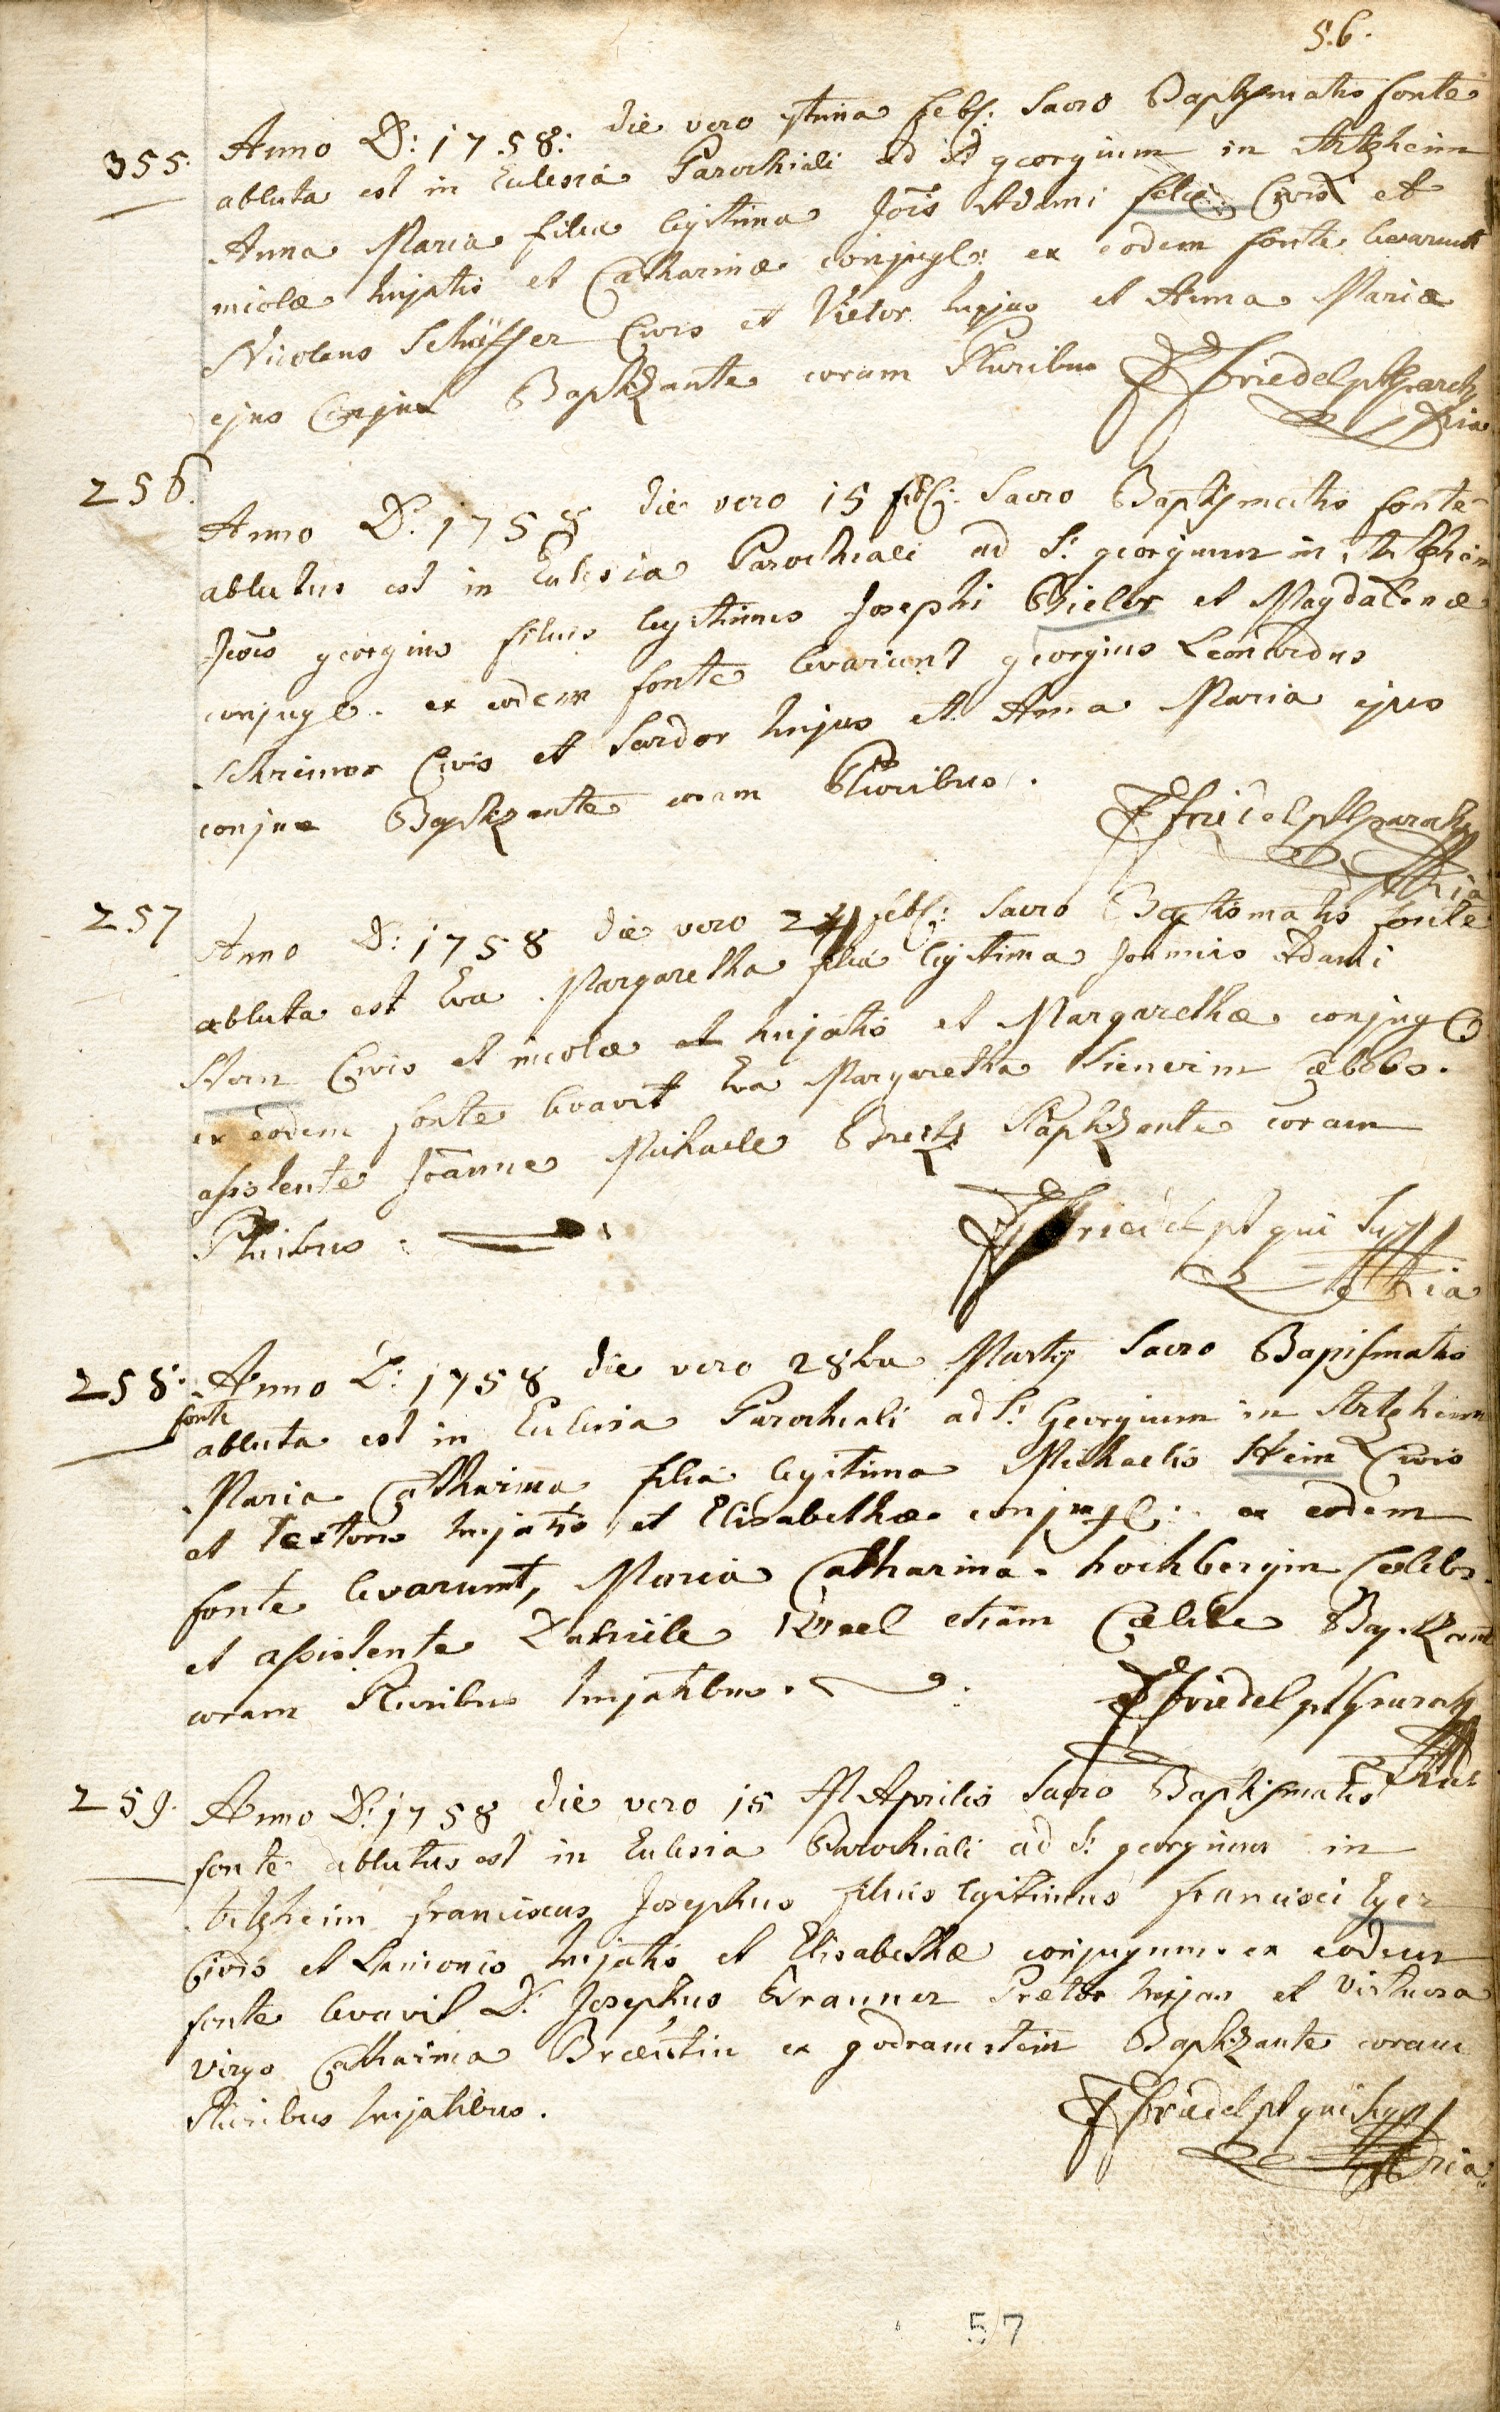 56.
355. Anno D: 1758: die vero Febr: Sacro Baptismatis fonte
abluta est in Eclesia Parochiali ad St georgium in Artzheim
Anna Maria filia legitima Jois Adami Civis et
incolæ hujatis et Catharinæ conjugl: ex eodem fonte levarunt
Nicolaus Schäffer Civis et Vietor hujas et Anna Maria
ejus Conjux Baptizante coram Pluribus JFriedel pt parch
256. Anno D. 1758 die vero 15 feb: Sacro Baptismatis fonte
ablutus est in Eclesia Parochiali ad St. georgium in Artzheim
Jois georgius filius legitimus Josephi Bielor et Magdalenæ
conjugl. ex eodem fonte levarunt georgius Leonardus
Schreiner Civis et Sardor hujas et Anna Maria ejus
conjux Baptizante coram Pluribus.
JFriedel pt parch
257 Anno D: 1758 die vero feb: Sacro Baptismatis fonte
abluta est Eva Margaretha filia legitima Joannis Adami
Horn Civis et incolæ et hujatis et Margarethæ conjug
ex eodem fonte levavit Eva Margaretha Sienerin Cælebs.
assistente Joanne Michaele Baptizante coram
Pluribus.
JFriedel pt qui Sup
258. Anno D: 1758 die vero 28va Martij Sacro Bapismatis
fonte
abluta est in Eclesia Parochiali ad St: Georgium in Artzheim
Maria Catharina filia legitima Michaelis Hein Civis
et Textoris hujatis et Elisabethæ conjugl: ex eodem
fonte levarunt, Maria Catharina hochbergin Cælebs.
et assistente etiam Cælibe Baptizant
coram Pluribus hujatibus.
JFriedel pt parch
259. Anno D: 1758 die vero 15 Aprilis Sacro Baptismatis
fonte ablutus est in Eclesia Parochiali ad St: georgium in
Artzheim franciscus Josephus filius legitimus francisci Eyer
Civis et Lanionis hujatis et Elisabethæ conjugum. ex eodem
fonte levavit D: Josephus Brauner Prætor hujas et Virtuosa
Virgo Catharina ex godramstein Baptizante coram
Pluribus hujatibus.
JFriedel pt qui Sup
57